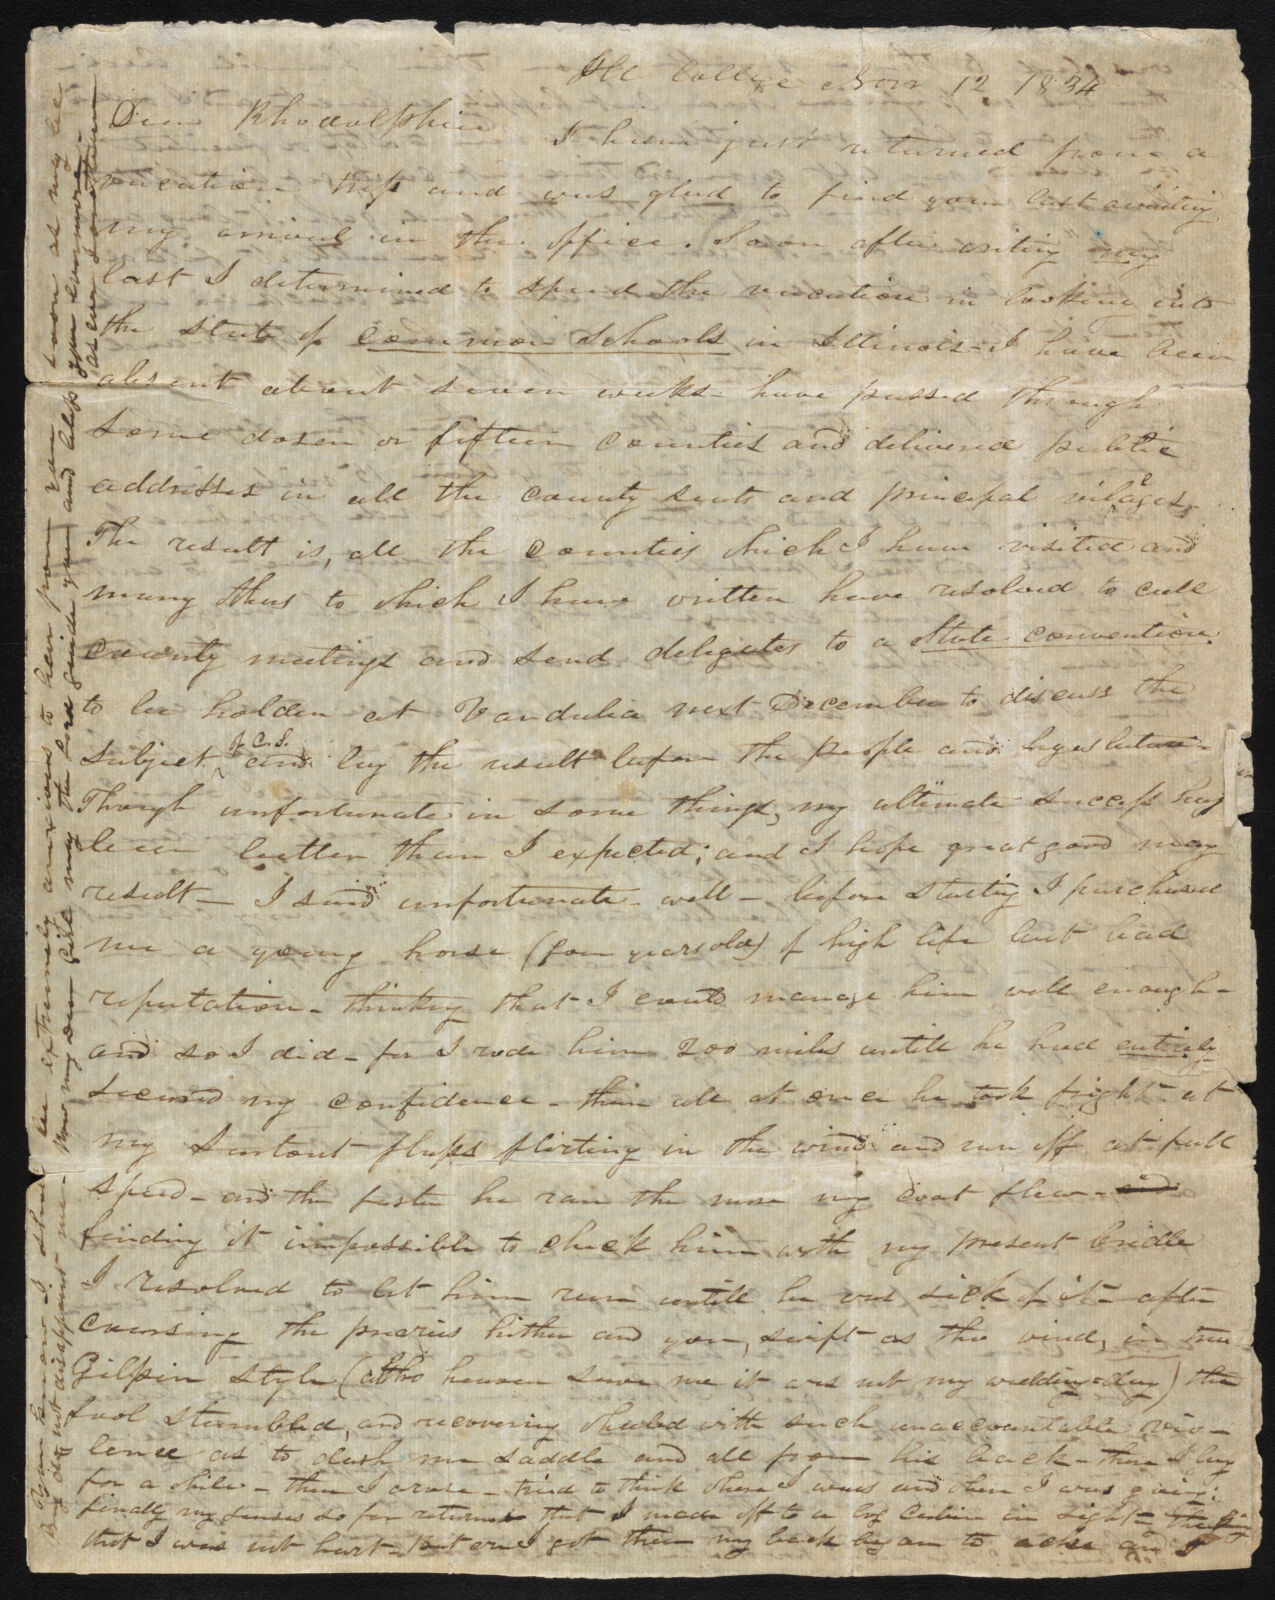 Ill College Nov 12 1834
Dear Rhodolphia I have just returned from a
vacation trip and was glad to find your last awaiting
my arrival in the office. Soon after writing my
last I determined to spend the vacation in looking into
the state of common schools in Illinois - I have been
absent about seven weeks - have passed through
some dozen or fifteen counties and delivered public
addresses in all the county seats and principal vilages.
The result is, all the counties which I have visited and
many thus to which I have written have resolved to call
county meetings and send delegates to a State convention
to be holden at Vandalia next December to discuss the
subject of C. S. and lay the result before the people and legislature -
Though unfortunate in some things, my ultimate success has
been better than I expected; and I hope great good may
result - I said unfortunate - well - before starting I purchased
me a young horse (four years old) of high life but bad
reputation - thinking that I could manage him well enough -
and so I did - for I rode him 200 miles untill he had entirely
secured my confidence - then all at once he took fright at
my Surtout flaps flirting in the wind and run off at full
speed - and the faster he ran the more my coat flew - and
finding it impossible to check him with my present bridle
I resolved to let him run untill he was sick of it - after
coursing the praries hither and yon, swift as the wind, in true
Gilpin style (altho heaven save me it was not my wedding day) the
fool stumbled, and recovering wheeled with such unaccountable vio-
lence as to dash me saddle and all from his back - there I lay
for a while - then I arose - tried to think where I was and where I was going:
finally my senses so far returned that I made off to a log cabin in sight -
that I was not hurt - But ere I got there my back began to ache and I
By return I shall be extremely anxious to hear from you soon as may be
do not disappoint me - Now my dear Girl may the Lord guide you and bless you evermore -
as ever Jonathan